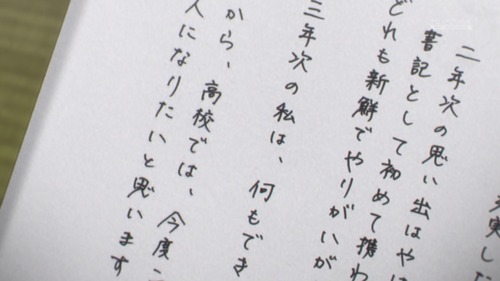 実した
二年次の思い出はやは
書記として初めて携わ
どれも新鮮でやりがいが
三年次の私は、何もでき
から、高校では、今度
人になりたいと思います